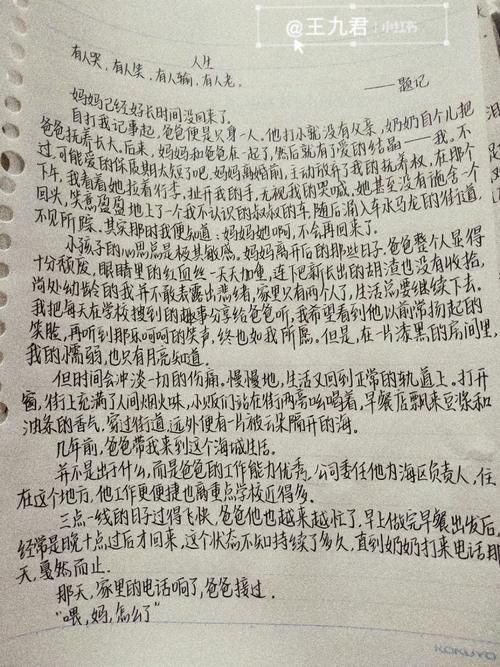 @王九君 小红书
人生
有人哭，有人笑，有人输，有人老。
——题记
妈妈已经好长时间没回来了。
自打我记事起，爸爸便是只身一人。他打小就没有父亲，奶奶自个儿把
爸爸抚养长大。后来，妈妈和爸爸在一起了，然后就有了爱的结晶——我。不
过，可能爱的保质期太短了吧，妈妈离婚前，主动放弃了我的抚养权，在那个
下午，我看着她拉着行李，扯开我的手，无视我的哭喊，她甚至没有施舍一个
回头，笑意盈盈地上了一个我不认识的叔叔的车，随后涌入车水马龙的街道，
不见所踪。其实那时我便知道：妈妈她啊，不会再回来了。
小孩子的心思总是极其敏感。妈妈离开后的那些日子，爸爸整个人显得
十分颓废，眼睛里的红血丝一天天加重，连下巴新长出的胡渣也没有收拾，
尚处幼龄的我并不敢表露出悲绪，家里只有两个人了，生活总要继续下去。
我把每天在学校搜到的趣事分享给爸爸听，我希望看到他以前常扬起的
笑脸，再听到那乐呵呵的笑声，终也如我所愿。但是，在一片漆黑的房间里，
我的懦弱，也只有月亮知道。
但时间会冲淡一切的伤痛。慢慢地，生活又回到正常的轨道上。打开
窗，街上充满了人间烟火味，小贩们站在街两旁吆喝着，早餐店飘来豆浆和
油条的香气，穿过街道，远处便有一片被云朵隔开的海。
几年前，爸爸带我来到这个海城生活。
并不是出于什么，而是爸爸的工作能力优秀，公司委任他为海区负责人，住
在这个地方，他工作更便捷也离重点学校近得多。
三点一线的日子过得飞快，爸爸他也越来越忙了，早上做完早餐出发后，
经常是晚十点过后才回来，这个状态不知持续了多久，直到奶奶打来电话那
天，戛然而止。
那天，家里的电话响了，爸爸接过。
“喂，妈，怎么了”
KOKUYO